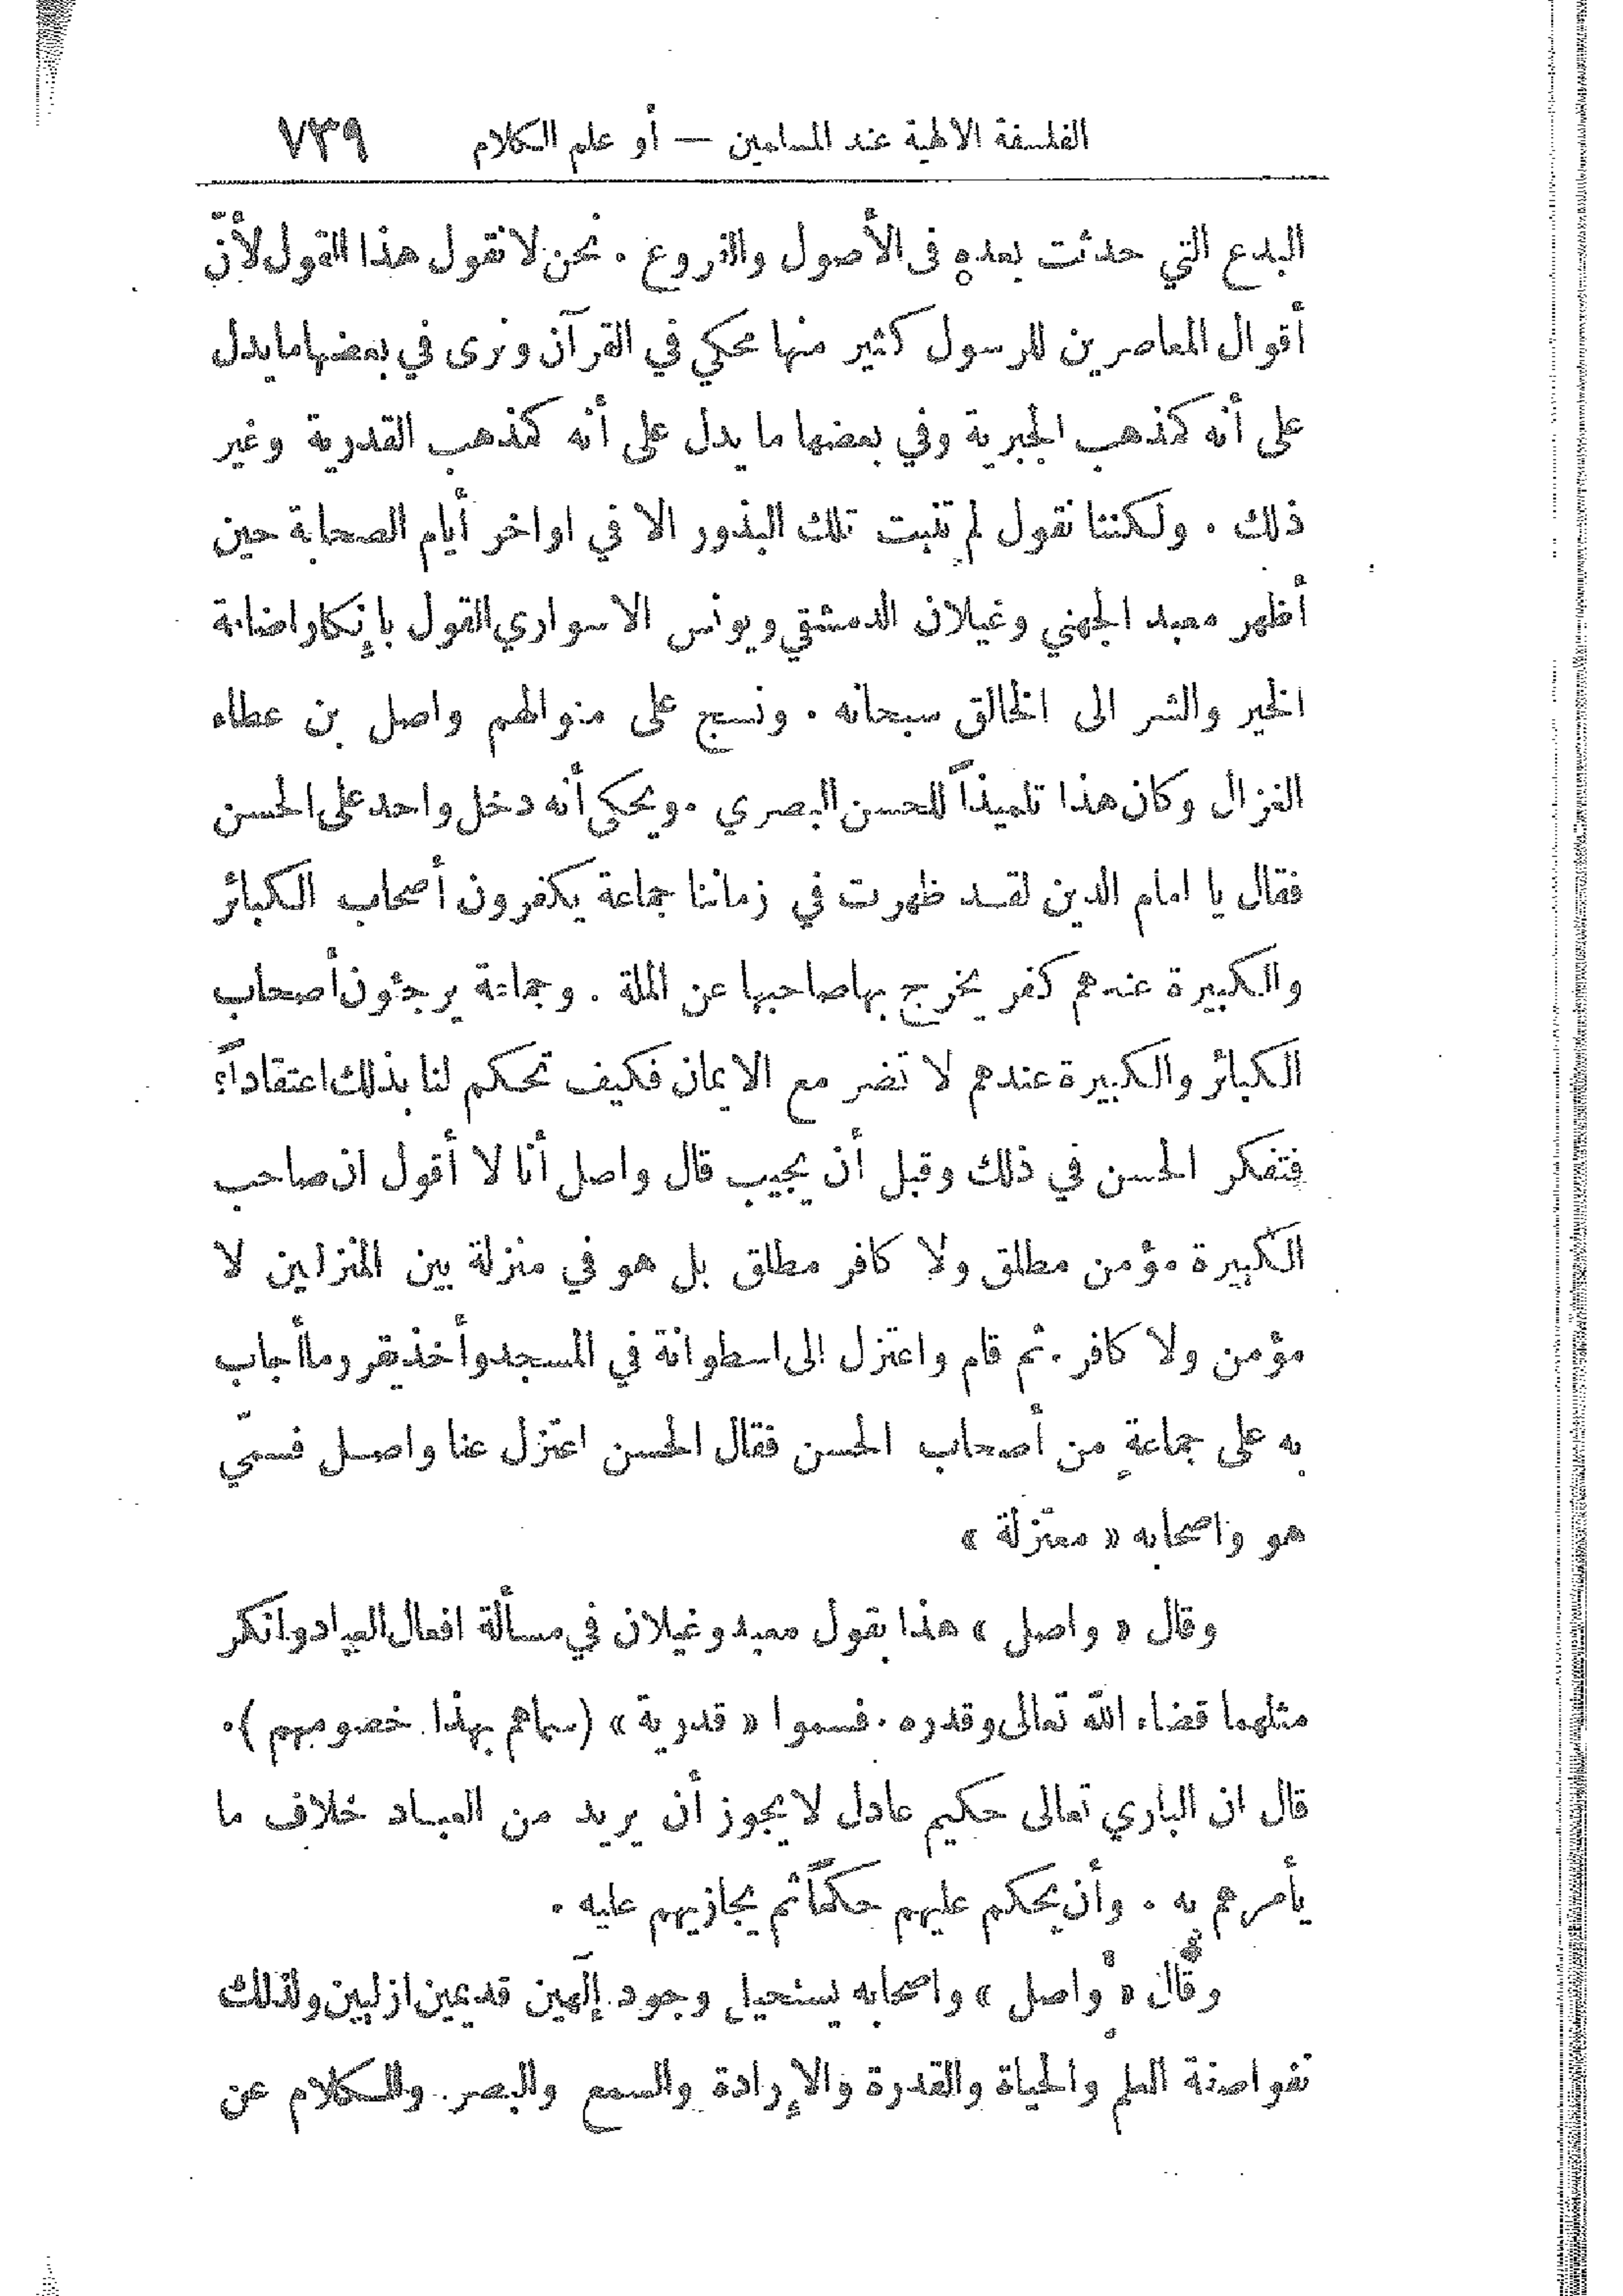 الفلسفة الالهية عند المسلمين — أو علم الكلام ٧٣٩
البدع التي حدثت بعده في الأصول والفروع . نحن لا نقول هذا القول لأنّ
أقوال المعاصرين للرسول كثير منها محكي في القرآن ونرى في بعضها ما يدل
على أنه كمذهب الجبرية وفي بعضها ما يدل على أنه كمذهب القدرية وغير
ذلك . ولكننا نقول لم تنبت تلك البذور الا في اواخر أيام الصحابة حين
أظهر معبد الجهني وغيلان الدمشقي ويونس الاسواري القول بإنكار اضافة
الخير والشر الى الخالق سبحانه . ونسج على منوالهم واصل بن عطاء
الغزال وكان هذا تلميذاً للحسن البصري . ويحكى أنه دخل واحد على الحسن
فقال يا امام الدين لقد ظهرت في زماننا جماعة يكفرون أصحاب الكبائر
والكبيرة عندهم كفر يخرج بها صاحبها عن الملة . وجماعة يرجئون أصحاب
الكبائر والكبيرة عندهم لا تضر مع الايمان فكيف تحكم لنا بذلك اعتقاداً؟
فتفكر الحسن في ذلك وقبل أن يجيب قال واصل أنا لا أقول ان صاحب
الكبيرة مؤمن مطلق ولا كافر مطلق بل هو في منزلة بين المنزلين لا
مؤمن ولا كافر . ثم قام واعتزل إلى اسطوانة في المسجد وأخذ يقرر ما أجاب
به على جماعةٍ من أصحاب الحسن فقال الحسن اعتزل عنا واصل فسمّي
هو واصحابه « معتزلة »
وقال « واصل » هذا بقول معبد وغيلان في مسألة افعال العباد وانكر
مثلهما قضاء الله تعالى وقدره . فسموا « قدرية » (سماهم بهذا خصومهم ) .
قال ان الباري تعالى حكيم عادل لا يجوز أن يريد من العباد خلاف ما
يأمرهم به . وأن يحكم عليهم حكماً ثم يجازيهم عليه .
وقال « واصل » واصحابه يستحيل وجود إلَهين قديمين ازليين ولذلك
نفوا صفة العلم والحياة والقدرة والإرادة والسمع والبصر . والكلام عن